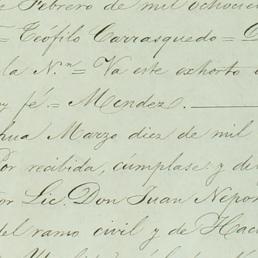 e Febrero de mil ochocien
= Teófilo Carrasquedo = D
la N.ⁿ = Va este exhorto
y fé = Mendez.
hua Marzo diez de mil
Por recibida, cúmplase y de
or Lic. Don Juan Nepom
del ramo civil y de Hac